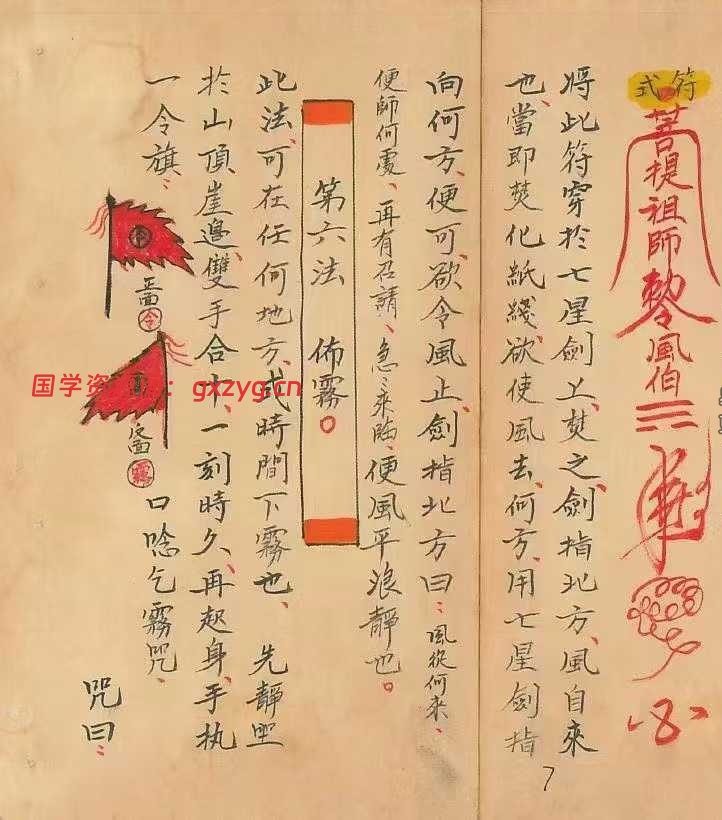 符式
菩提祖師勅令風伯
將此符穿於七星劍上、焚之、劍指北方、風自來
也、當即焚化紙錢、欲使風去、何方、用七星劍指
向何方、便可、欲令風止、劍指北方曰：風從何來、
便歸何處、再有召請、急急來臨、便風平浪靜也。
第六法 佈霧。
此法、可在任何地方、或時間下霧也、先靜坐
於山頂崖邊、雙手合十、一刻時久、再起身、手执
一令旗：
正面 令
反面 霧
口唸乞霧咒、
咒曰：
7
国学资源：gxzyg.cn